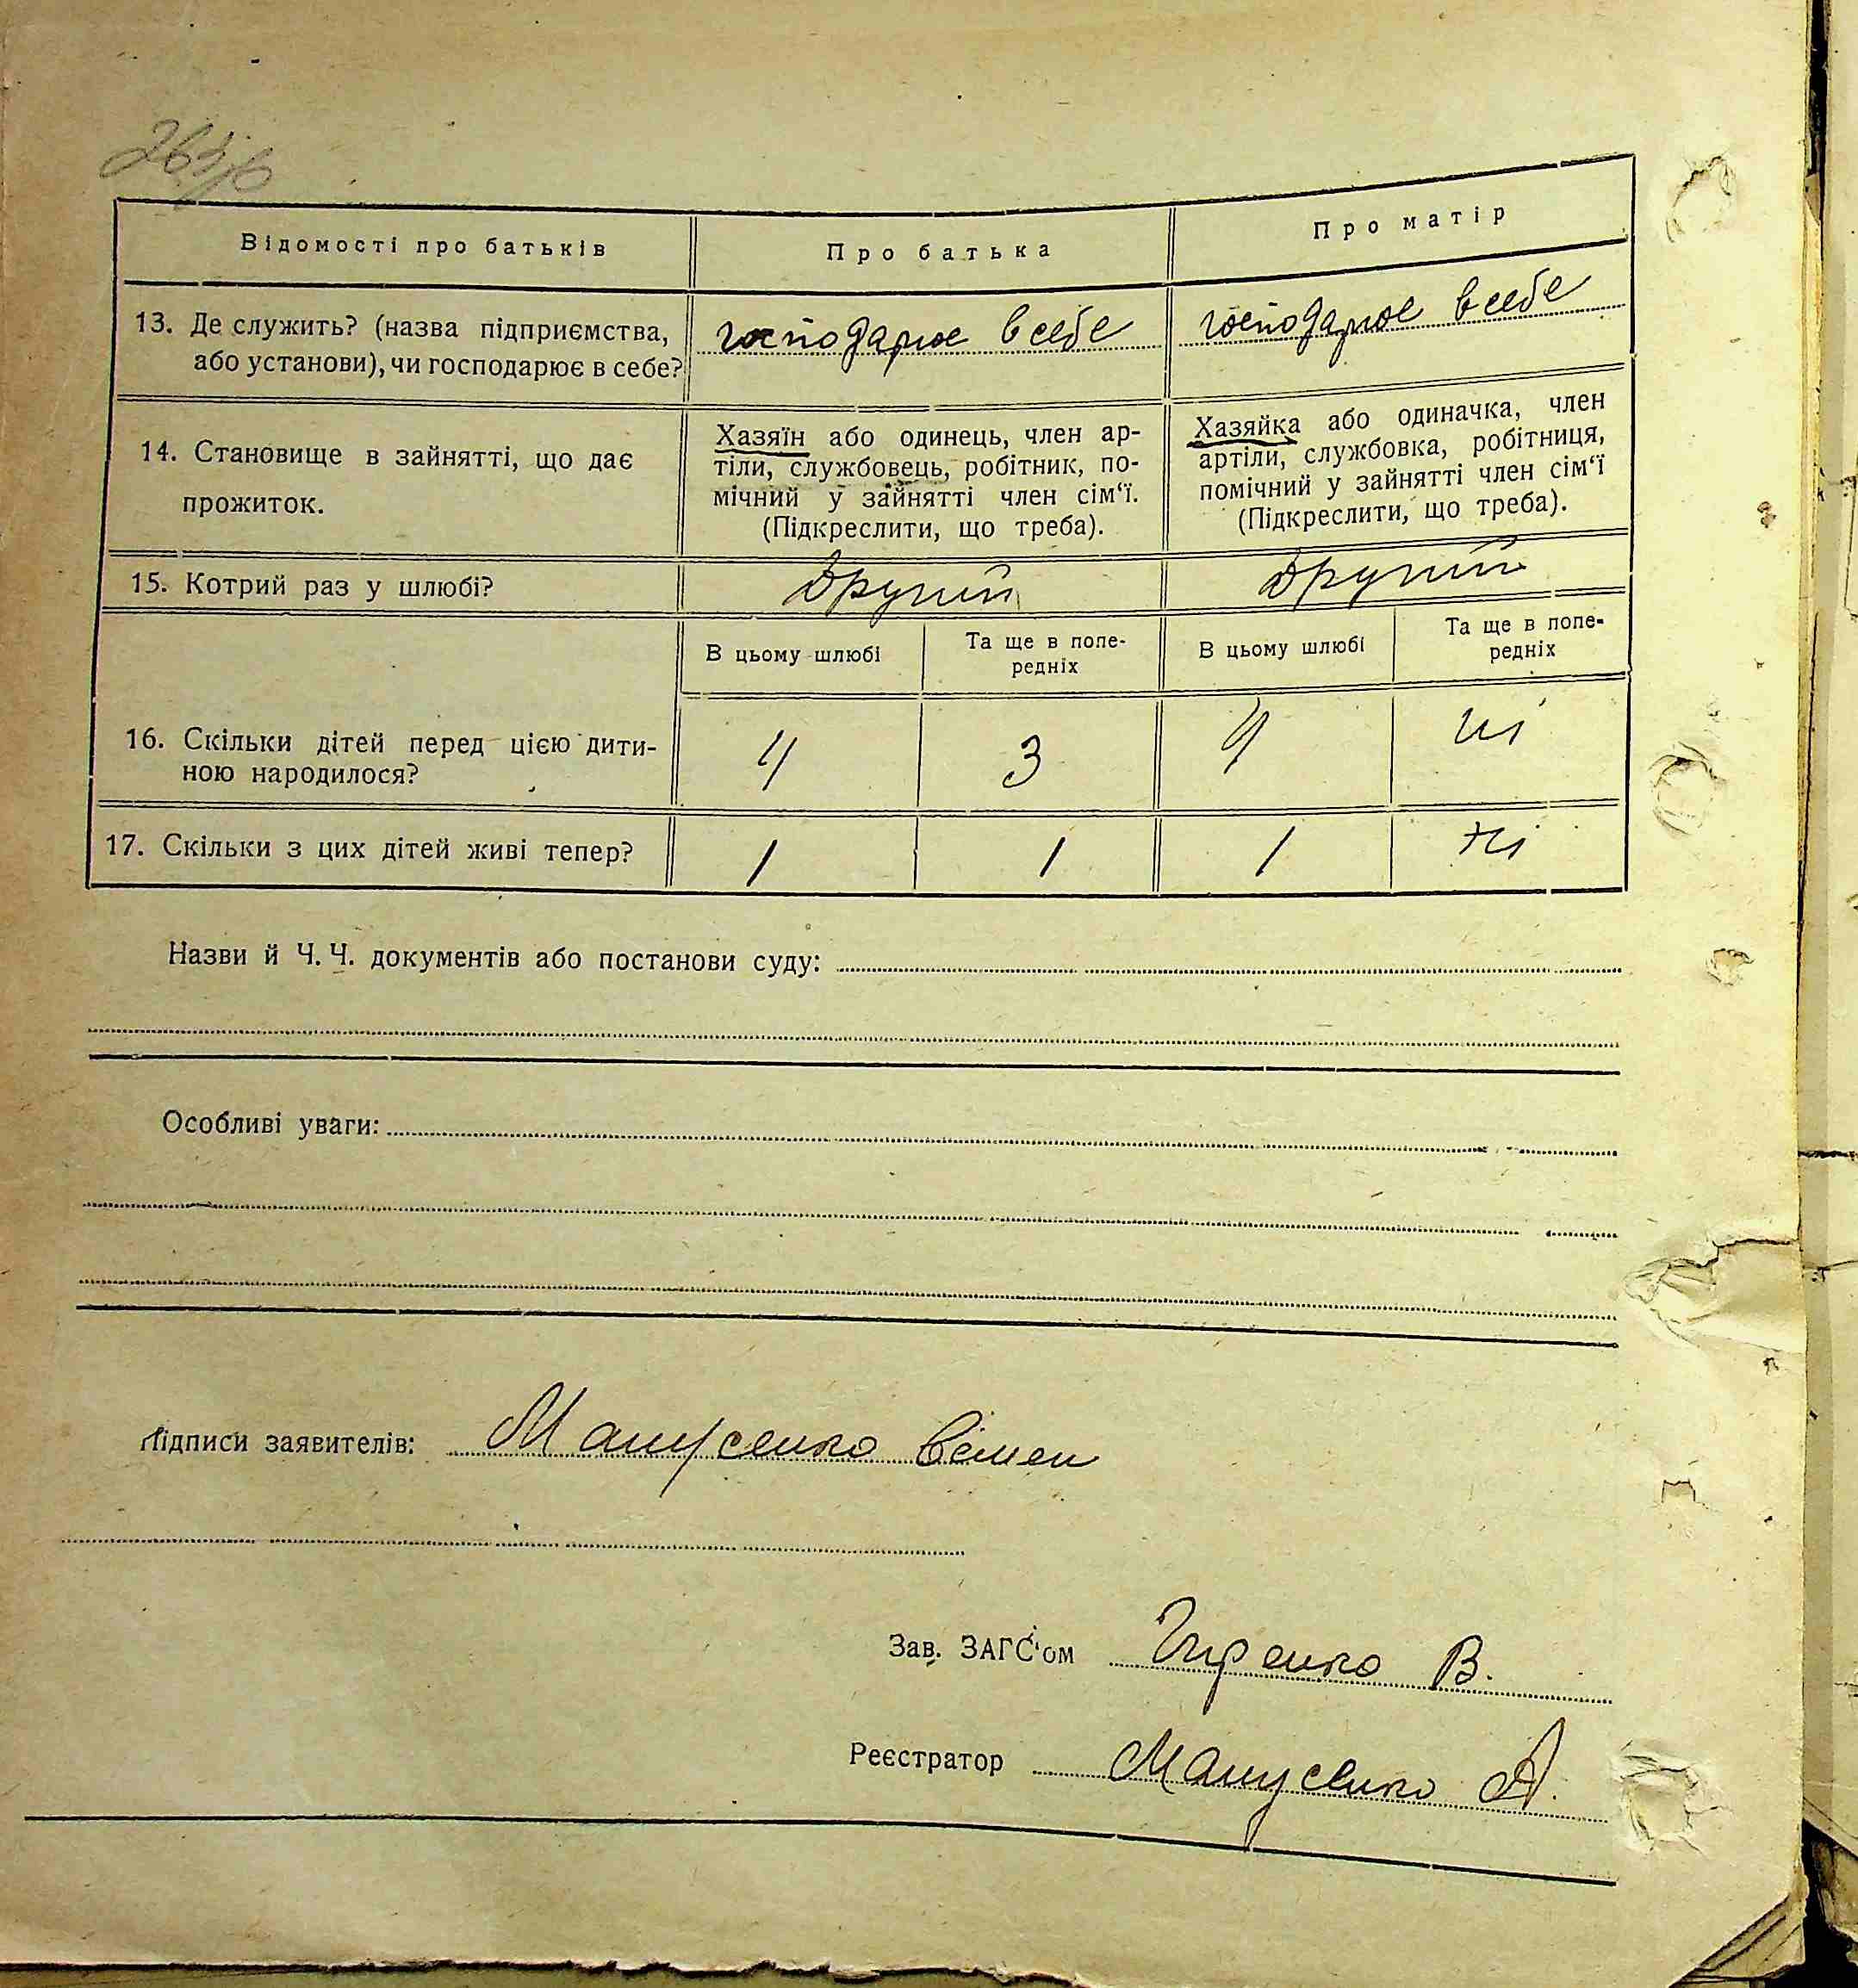 Відомості про батьків
Про батька
Про матір
13. Де служить? (назва підприємства,
або установи), чи господарює в себе?
господарює в себе
господарює в себе
14. Становище в зайнятті, що дає
прожиток.
Хазяїн або одинець, член ар-
тіли, службовець, робітник, по-
мічний у зайнятті член сім‘ї.
(Підкреслити, що треба).
Хазяйка або одиначка, член
артіли, службовка, робітниця,
помічний у зайнятті член сім‘ї
(Підкреслити, що треба).
15. Котрий раз у шлюбі?
другий
другий
В цьому шлюбі
Та ще в попе-
редніх
В цьому шлюбі
Та ще в попе-
редніх
16. Скільки дітей перед цією дити-
ною народилося?
4
3
4
ні
17. Скільки з цих дітей живі тепер?
1
1
1
ні
Назви й Ч. Ч. документів або постанови суду:
Особливі уваги:
Підписи заявителів: Манусенко Семен
Зав. ЗАГС‘ом В.
Реєстратор Манусенко А.